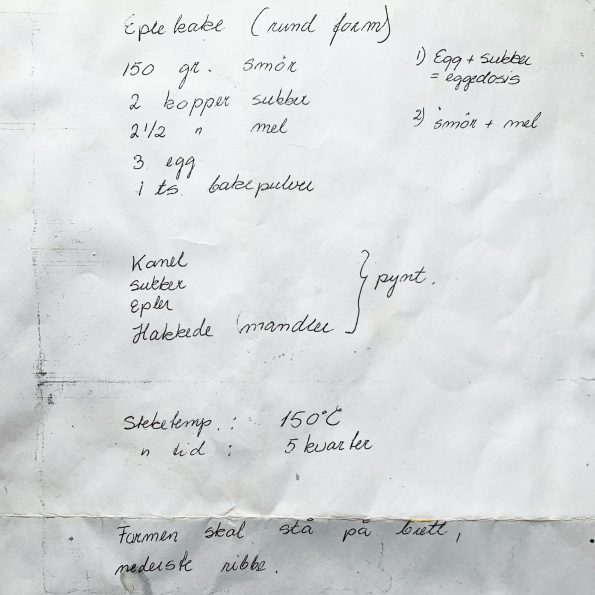 Eplekake (rund form)
150 gr. smör
2 kopper sukker
2 1/2 " mel
3 egg
1 ts. bakepulver
1) Egg + sukker
= eggedosis
2) smör + mel
Kanel
sukker
Epler
Hakkede mandler
} pynt.
Steketemp. : 150°C
" tid : 5 kvarter
Formen skal stå på brett,
nederste ribbe.